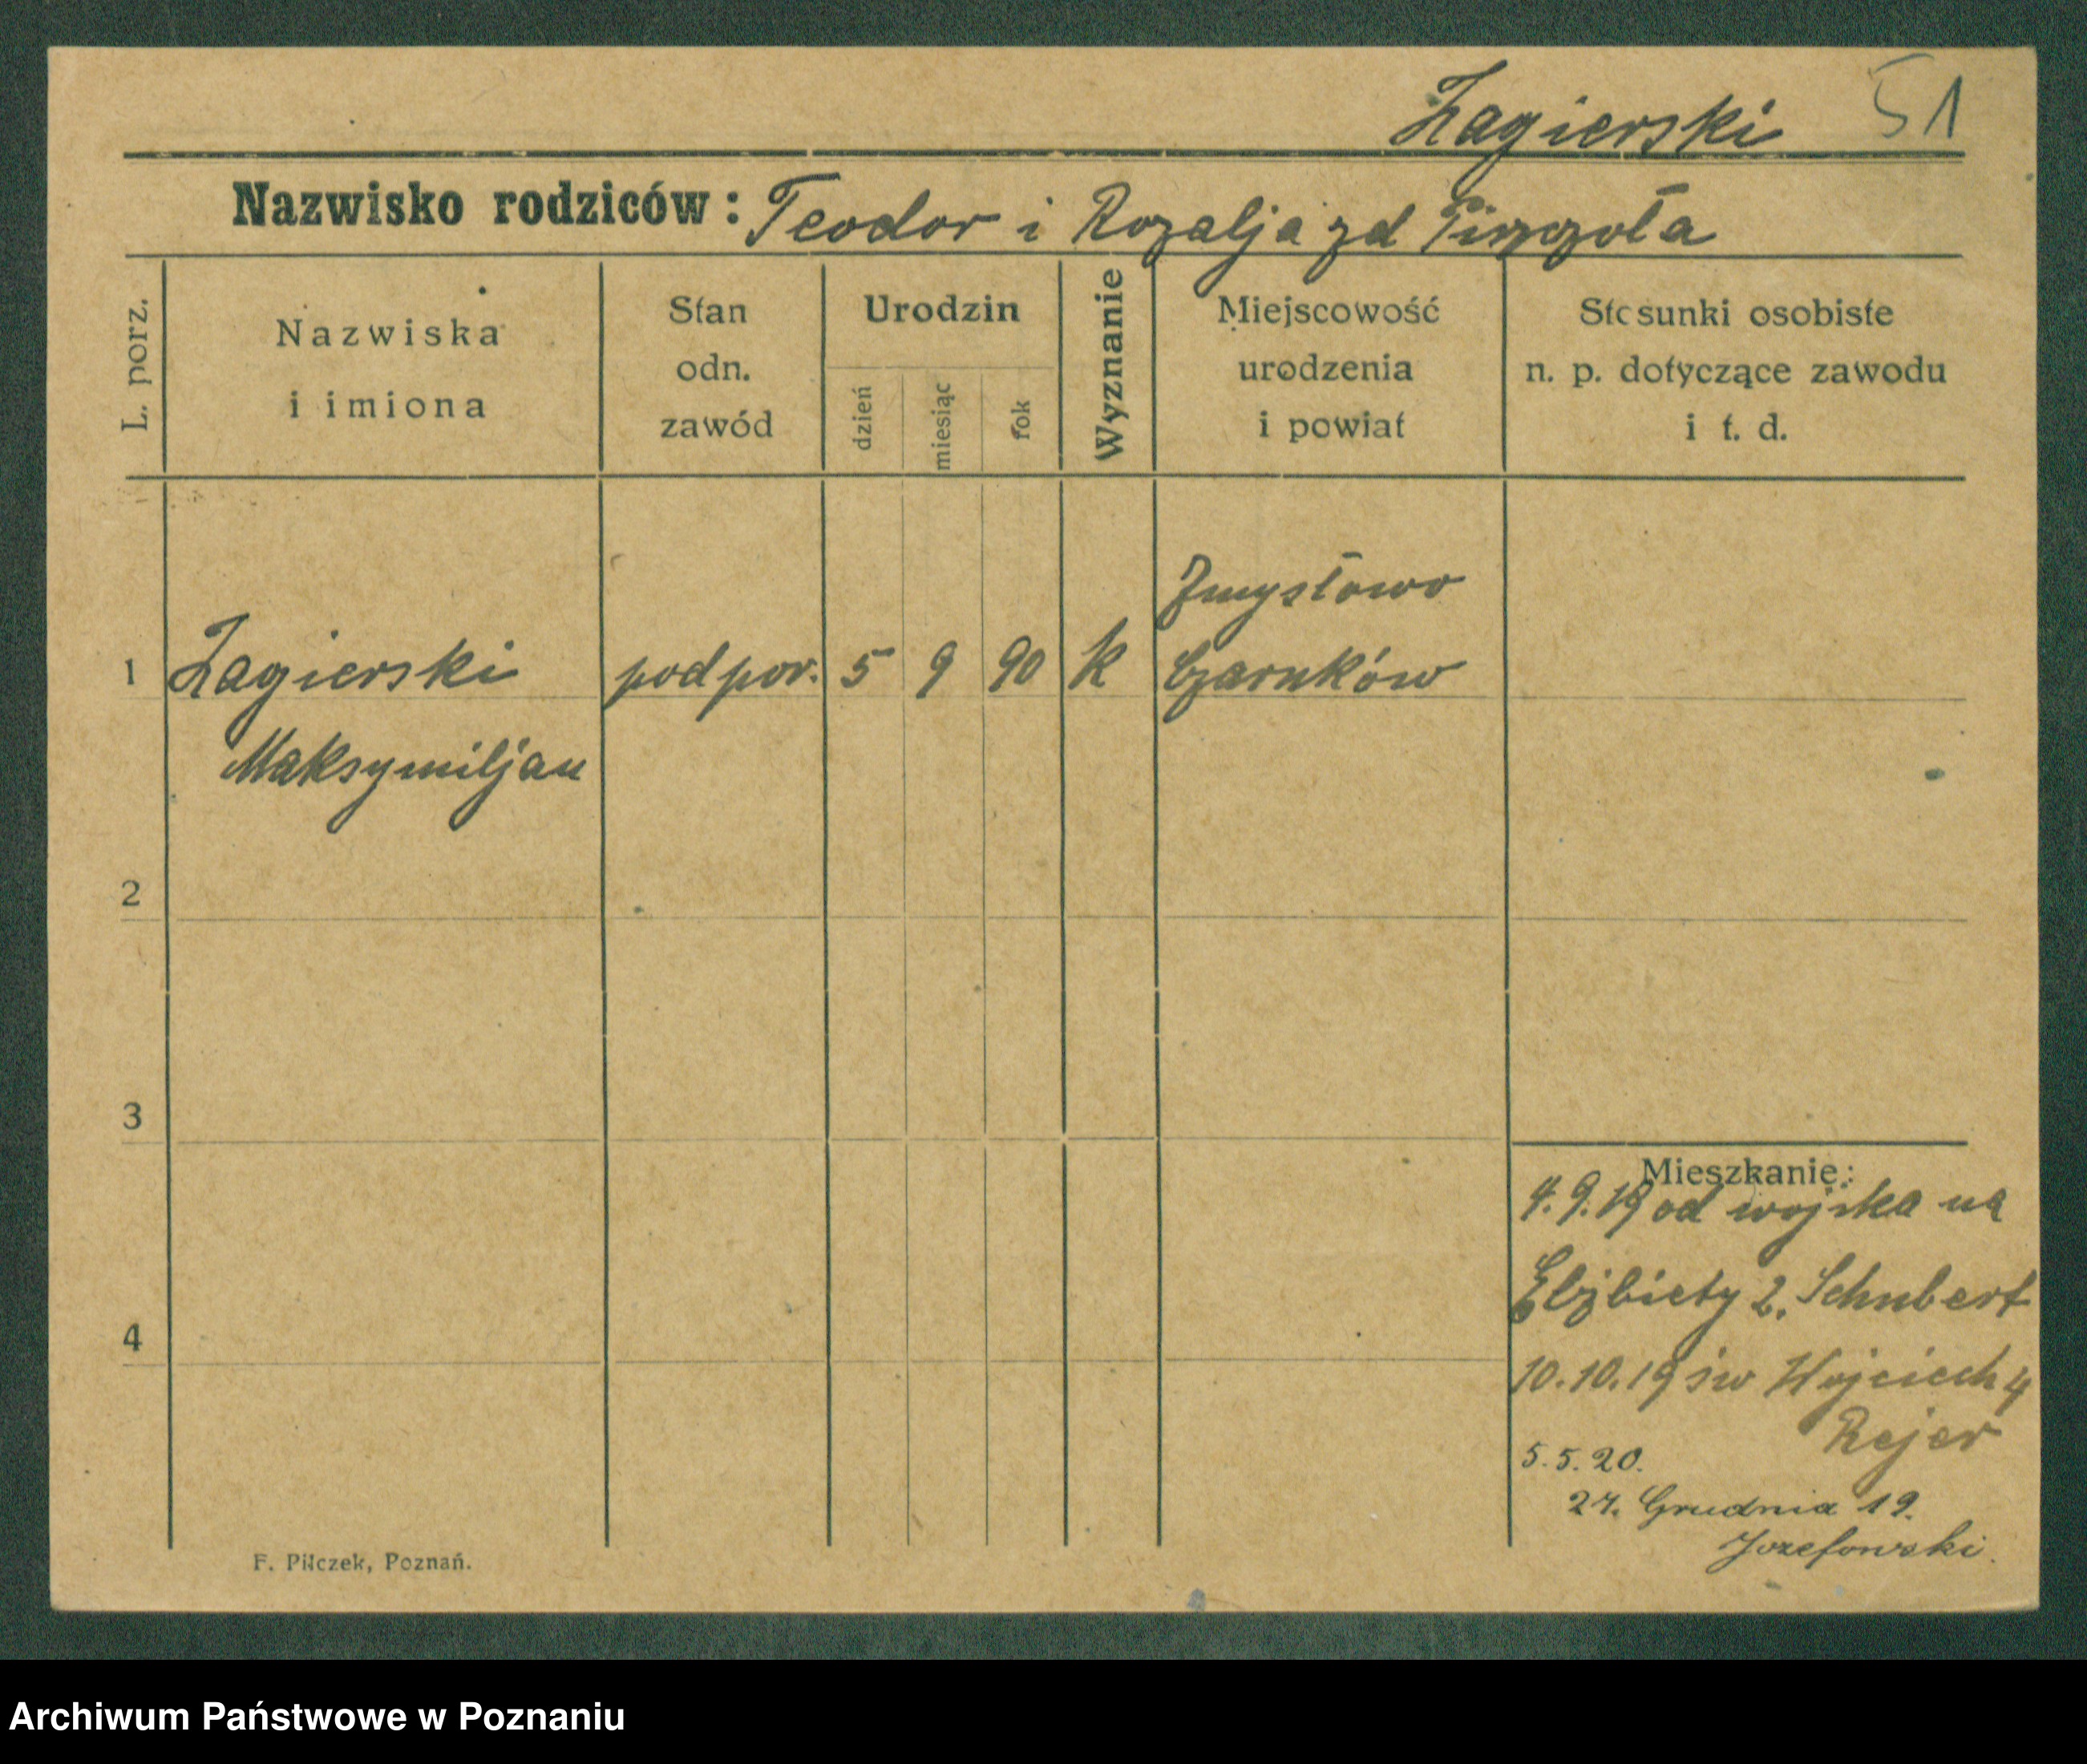 Żagierski 51
Nazwisko rodziców: Teodor i Rozalja zd
L. porz.
Nazwiska
i imiona
Stan
odn.
zawód
Urodzin
dzień
miesiąc
rok
Wyznanie
Miejscowość
urodzenia
i powiat
Stosunki osobiste
n. p. dotyczące zawodu
i t. d.
Zmysłowo
1 Żagierski podpor. 5 9 90 k Czarnków
Maksymiljan
2
3
4
Mieszkanie:
4.9.19 od wojska na
Elżbiety 2. Schubert
10.10.19 św Wojciech 4
Rejer
5.5.20.
27. Grudnia 19.
Jozefowski.
F. Pilczek, Poznań.
Archiwum Państwowe w Poznaniu